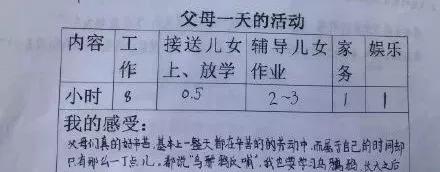 父母一天的活动
内容 工作 接送儿女上、放学 辅导儿女作业 家务 娱乐
小时 8 0.5 2~3 1 1
我的感受：
父母们真的好辛苦，基本上一整天都在辛苦的劳动中，而属于自己的时间却
只有那么一丁点儿。都说"乌鸦反哺"，我也要学习乌鸦，长大之后